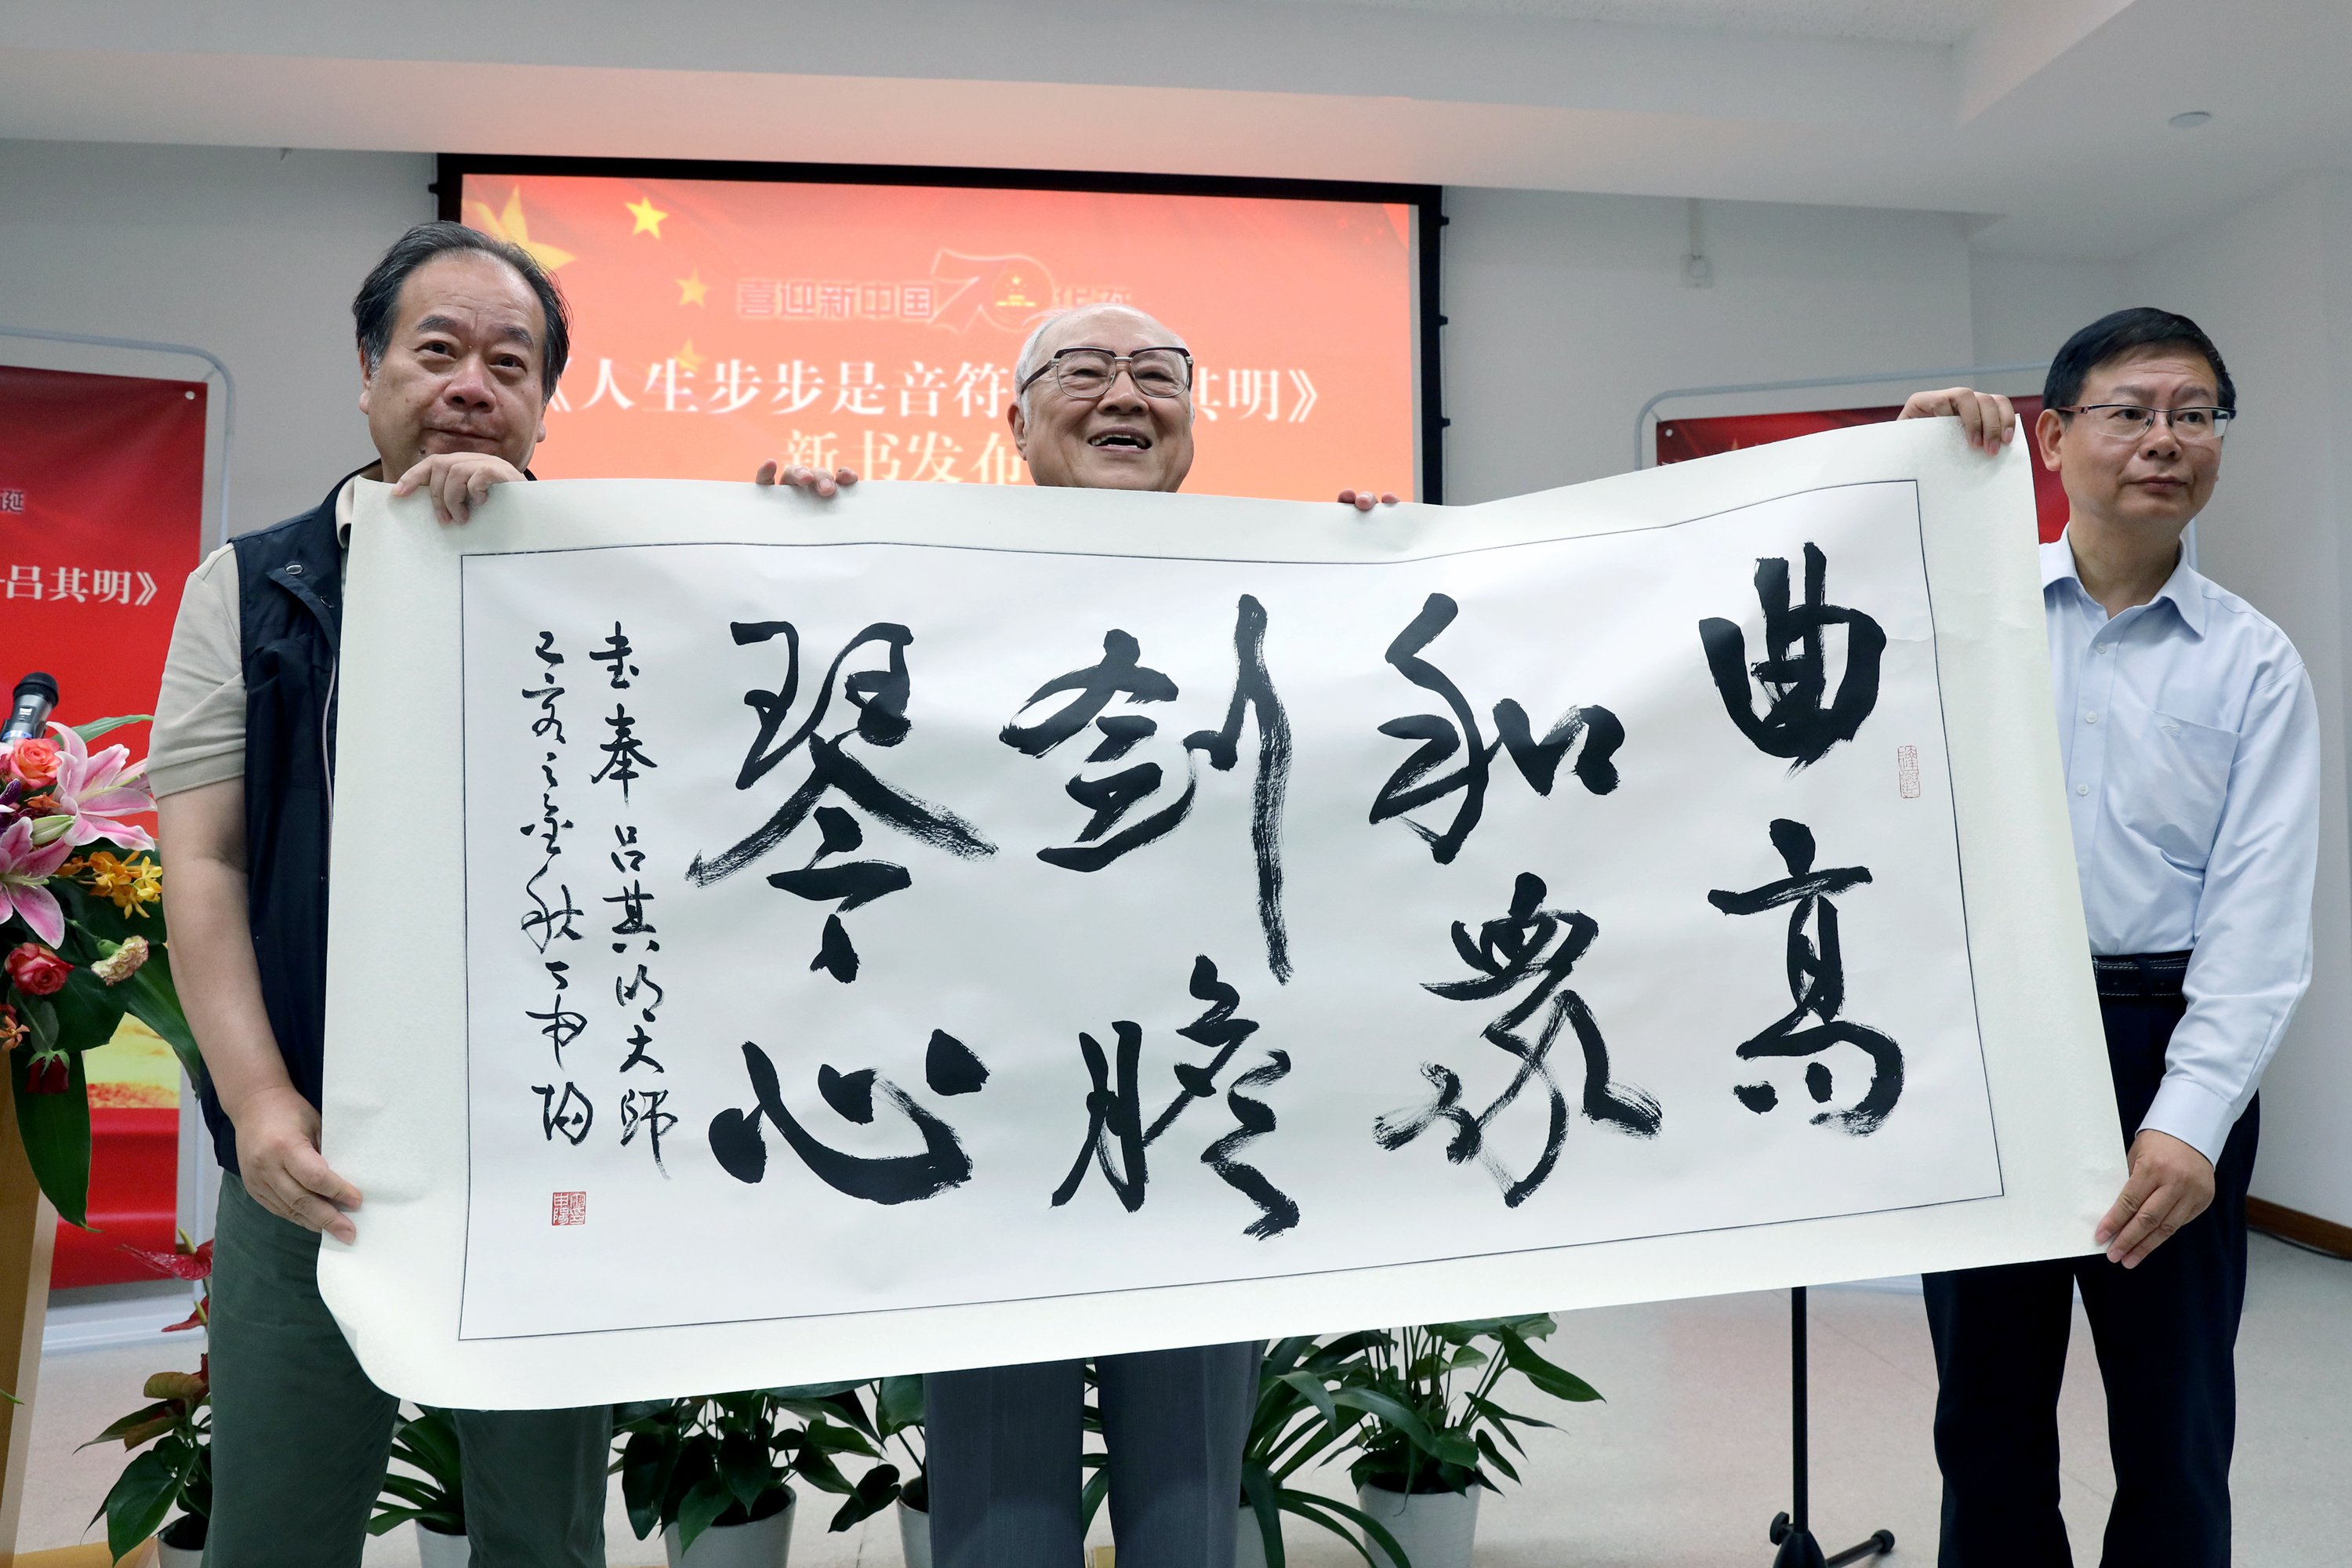 喜迎新中国70华诞
《人生步步是音符
其明》
新书发布
诞
吕其明》
曲高
和众
剑胆
琴心
书奉吕其明大师
己亥之金秋